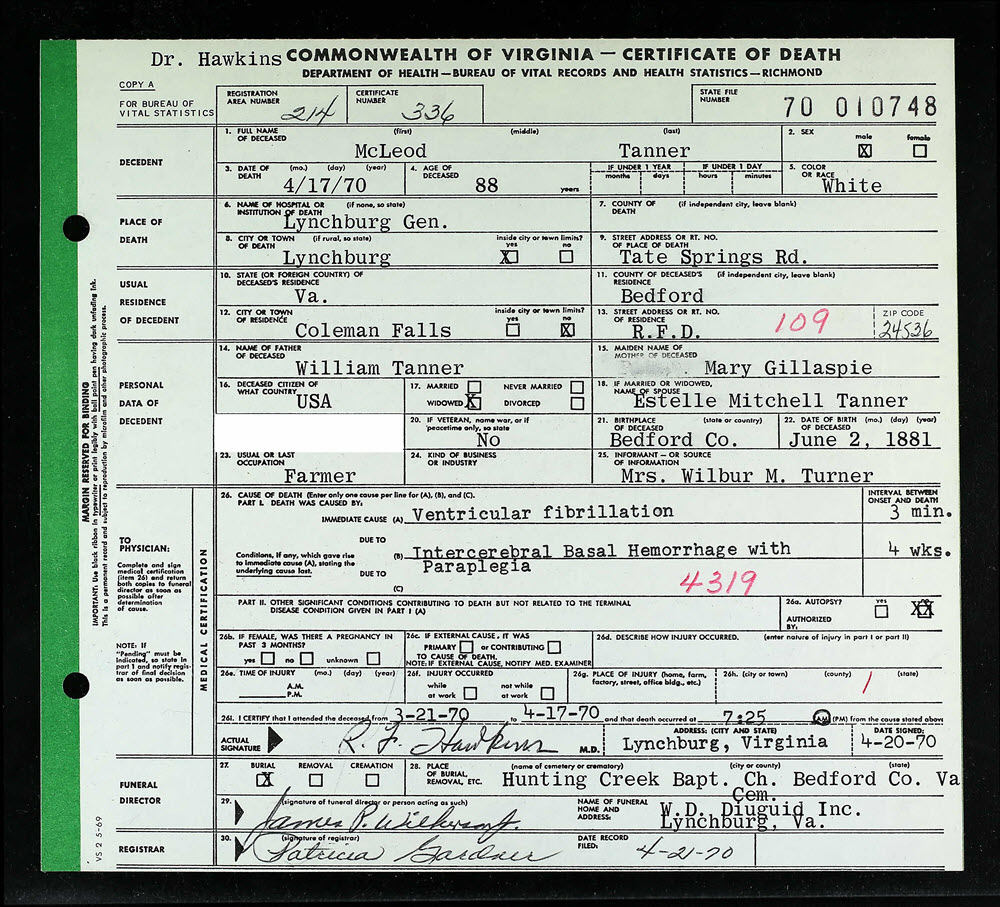 Dr. Hawkins COMMONWEALTH OF VIRGINIA — CERTIFICATE OF DEATH
DEPARTMENT OF HEALTH — BUREAU OF VITAL RECORDS AND HEALTH STATISTICS — RICHMOND
COPY A
FOR BUREAU OF VITAL STATISTICS
REGISTRATION AREA NUMBER 214
CERTIFICATE NUMBER 336
STATE FILE NUMBER 70 010748
DECEDENT
1. FULL NAME OF DECEASED (first) (middle) (last)
McLeod Tanner
2. SEX male X female
3. DATE OF DEATH (mo.) (day) (year)
4/17/70
4. AGE OF DECEASED
88 years
IF UNDER 1 YEAR months days
IF UNDER 1 DAY hours minutes
5. COLOR OR RACE
White
PLACE OF DEATH
6. NAME OF HOSPITAL OR INSTITUTION OF DEATH (if none, so state)
Lynchburg Gen.
7. COUNTY OF DEATH (if independent city, leave blank)
8. CITY OR TOWN OF DEATH (if rural, so state) inside city or town limits? yes X no
Lynchburg
9. STREET ADDRESS OR RT. NO. OF PLACE OF DEATH
Tate Springs Rd.
USUAL RESIDENCE OF DECEDENT
10. STATE (OR FOREIGN COUNTRY) OF DECEASED'S RESIDENCE
Va.
11. COUNTY OF DECEASED'S RESIDENCE (if independent city, leave blank)
Bedford
12. CITY OR TOWN OF RESIDENCE inside city or town limits? yes no X
Coleman Falls
13. STREET ADDRESS OR RT. NO. OF RESIDENCE
R.F.D. 109
ZIP CODE 24536
PERSONAL DATA OF DECEDENT
14. NAME OF FATHER OF DECEASED
William Tanner
15. MAIDEN NAME OF MOTHER OF DECEASED
. Mary Gillaspie
16. DECEASED CITIZEN OF WHAT COUNTRY
USA
17. MARRIED NEVER MARRIED
WIDOWED X DIVORCED
18. IF MARRIED OR WIDOWED, NAME OF SPOUSE
Estelle Mitchell Tanner
20. IF VETERAN, name war, or if peacetime only, so state
No
21. BIRTHPLACE OF DECEASED (state or country)
Bedford Co.
22. DATE OF BIRTH OF DECEASED (mo.) (day) (year)
June 2, 1881
23. USUAL OR LAST OCCUPATION
Farmer
24. KIND OF BUSINESS OR INDUSTRY
25. INFORMANT — OR SOURCE OF INFORMATION
Mrs. Wilbur M. Turner
MARGIN RESERVED FOR BINDING
IMPORTANT: Use black ribbon in typewriter or print legibly with ball point pen having dark unfading ink.
This is a permanent record and subject to reproduction by microfilm and other photographic process.
TO PHYSICIAN:
Complete and sign medical certification (item 26) and return both copies to funeral director as soon as possible after determination of cause.
NOTE: If "Pending" must be indicated, so state in part I and notify registrar of final decision as soon as possible.
MEDICAL CERTIFICATION
26. CAUSE OF DEATH (Enter only one cause per line for (A), (B), and (C).
PART I. DEATH WAS CAUSED BY:
INTERVAL BETWEEN ONSET AND DEATH
IMMEDIATE CAUSE (A) Ventricular fibrillation 3 min.
DUE TO
Conditions, if any, which gave rise to immediate cause (A), stating the underlying cause last.
(B) Intercerebral Basal Hemorrhage with 4 wks.
DUE TO Paraplegia
(C) 4319
PART II. OTHER SIGNIFICANT CONDITIONS CONTRIBUTING TO DEATH BUT NOT RELATED TO THE TERMINAL DISEASE CONDITION GIVEN IN PART I (A)
26a. AUTOPSY? yes no XX
AUTHORIZED BY:
26b. IF FEMALE, WAS THERE A PREGNANCY IN PAST 3 MONTHS?
yes no unknown
26c. IF EXTERNAL CAUSE, IT WAS
PRIMARY or CONTRIBUTING
TO CAUSE OF DEATH.
NOTE: IF EXTERNAL CAUSE, NOTIFY MED. EXAMINER
26d. DESCRIBE HOW INJURY OCCURRED. (enter nature of injury in part I or part II)
26e. TIME OF INJURY (mo.) (day) (year)
A.M.
P.M.
26f. INJURY OCCURRED
while at work not while at work
26g. PLACE OF INJURY (home, farm, factory, street, office bldg., etc.)
26h. (city or town) (county) (state)
1
26i. I CERTIFY that I attended the deceased from 3-21-70 to 4-17-70 and that death occurred at 7:25 (AM) (PM) from the cause stated above
ACTUAL SIGNATURE R. F. Hawkins M.D.
ADDRESS: (CITY AND STATE)
Lynchburg, Virginia
DATE SIGNED:
4-20-70
FUNERAL DIRECTOR
27. BURIAL X REMOVAL CREMATION
28. PLACE OF BURIAL, REMOVAL, ETC. (name of cemetery or crematory) (city or county) (state)
Hunting Creek Bapt. Ch. Bedford Co. Va
Cem.
29. (signature of funeral director or person acting as such)
James P. Wilkerson Jr.
NAME OF FUNERAL HOME AND ADDRESS:
W.D. Diuguid Inc.
Lynchburg, Va.
REGISTRAR
30. (signature of registrar)
Patricia Gardner
DATE RECORD FILED: 4-21-70
VS 2 5-69